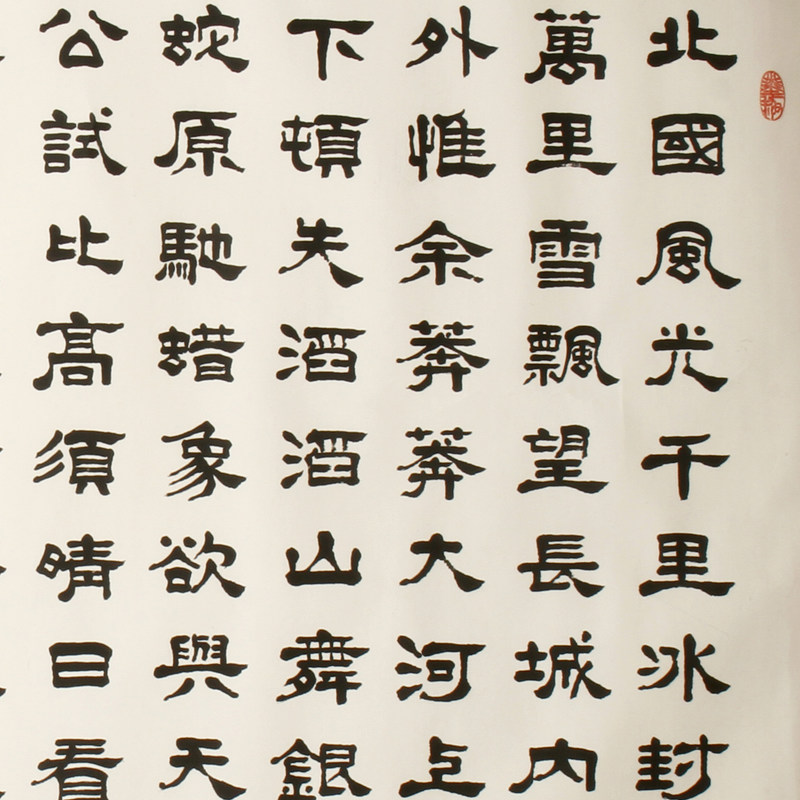 北國風光千里冰封
萬里雪飄望長城內
外惟余莽莽大河上
下頓失滔滔山舞銀
蛇原馳蜡象欲與天
公試比高須晴日看